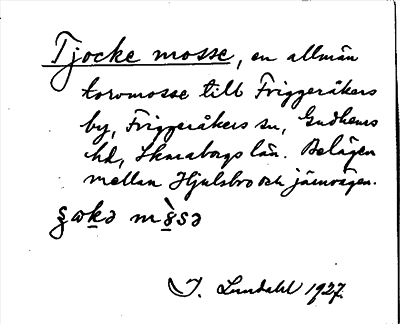 Tjocke mosse, en allmän
torvmosse till Friggeråkers
by, Friggeråkers sn, Gudhems
hd, Skaraborgs län. Belägen
mellan Hjulsbro och järnvägen.
I. Lundahl 1927.